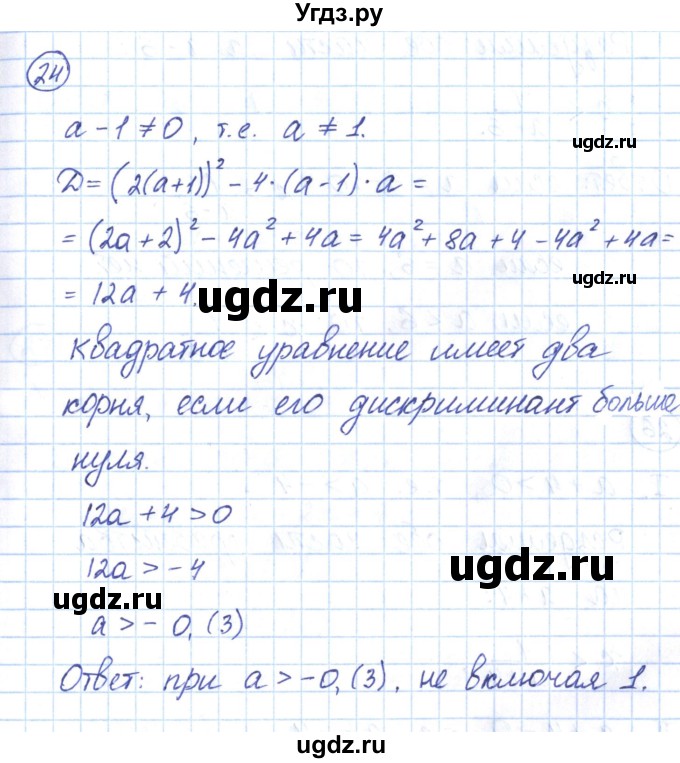 Угдз.ру
24
a - 1 ≠ 0, т.е. a ≠ 1.
ugdz.ru
Д = (2(a+1))² - 4·(a-1)·a =
= (2a+2)² - 4a² + 4a = 4a² + 8a + 4 - 4a² + 4a =
ugdz.ru
= 12a + 4.
ugdz.ru
Квадратное уравнение имеет два
корня, если его дискриминант больше
нуля.
12a + 4 > 0
12a > - 4
ugdz.ru
ugdz.ru
a > - 0,(3)
Ответ: при a > -0,(3), не включая 1.
ugdz.ru